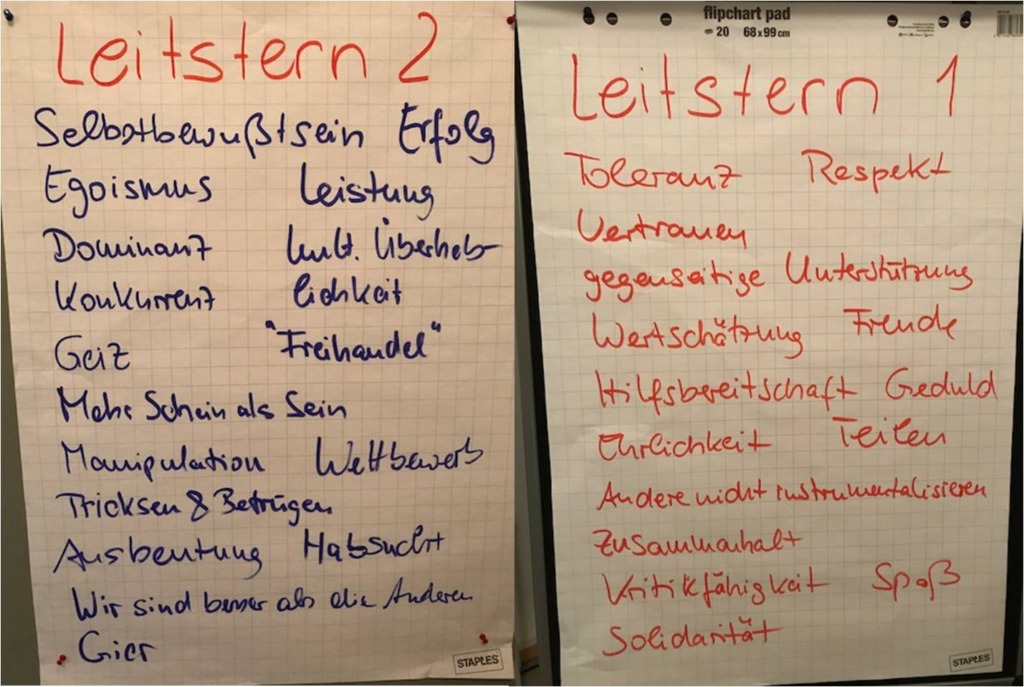 Leitstern 2
Selbstbewußtsein Erfolg
Egoismus Leistung
Dominanz kult. Überheb-
Konkurrenz lichkeit
Geiz "Freihandel"
Mehr Schein als Sein
Manipulation Wettbewerb
Tricksen & Betrügen
Ausbeutung Habsucht
Wir sind besser als die Anderen
Gier
STAPLES
flipchart pad
20 68 x 99 cm
Leitstern 1
Toleranz Respekt
Vertrauen
gegenseitige Unterstützung
Wertschätzung Freude
Hilfsbereitschaft Geduld
Ehrlichkeit Teilen
Andere nicht instrumentalisieren
Zusammenhalt
Kritikfähigkeit Spaß
Solidarität
STAPLES